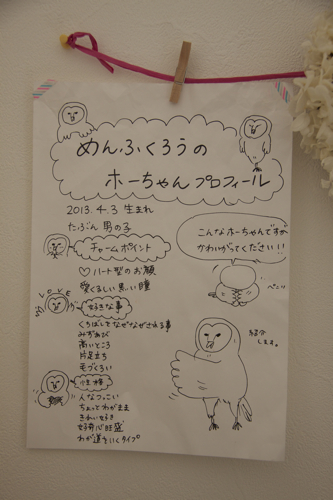 めんふくろうの
ホーちゃんプロフィール
2013.4.3 生まれ
たぶん 男の子
チャームポイント
♡ハート型のお顔
愛くるしい黒い瞳
LOVE
好きな事
くちばしをなぜなぜされる事
みずあび
高いところ
片足立ち
毛づくろい
性格
人なつっこい
ちょっとわがまま
きれい好き
好奇心旺盛
わが道をいくタイプ
こんなホーちゃんですが
かわいがってください!!
ぺこり
紹介
します。